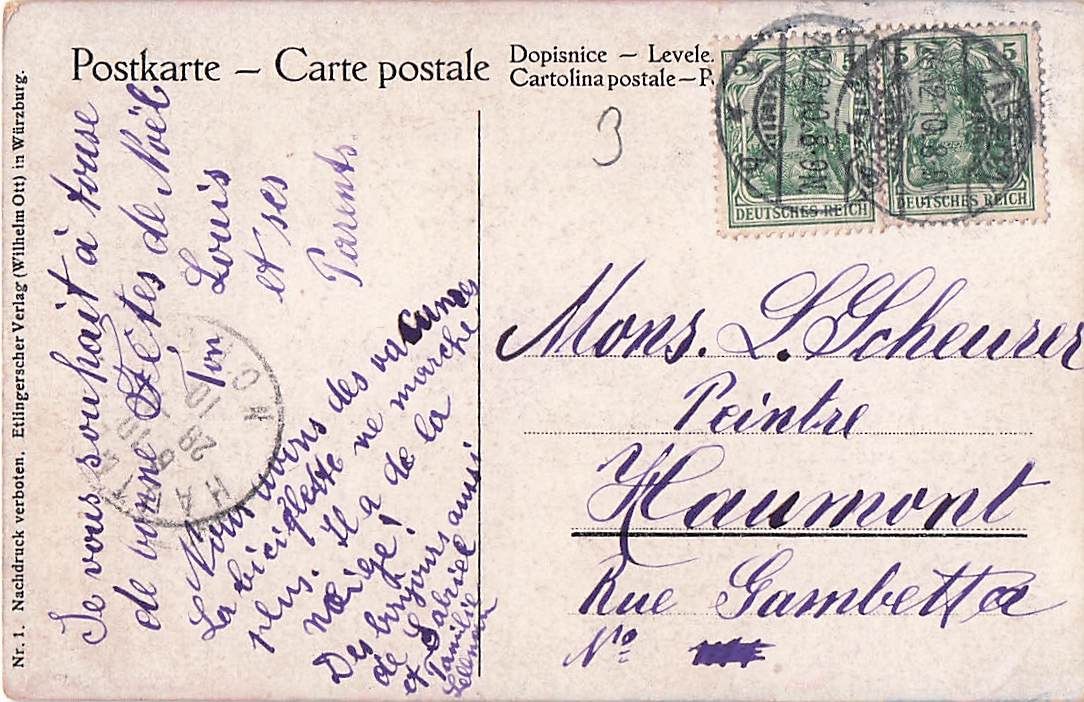 Postkarte – Carte postale
Dopisnice – Levele.
Cartolina postale – P
5 5
DEUTSCHES REICH
5 5
DEUTSCHES REICH
3
Nr. 1. Nachdruck verboten. Etlingerscher Verlag (Wilhelm Ott) in Würzburg.
Je vous souhait à touse
de bonne Fêtes de Noël
Ton
Louis
et ses
Parents
Nous avons des vacances
La biciclette ne marche
plus. Il a de la
neige!
Des bonjours aussi
de
et Gabriel
Familie
Mons. L. Scheurer
Peintre
Haumont
Rue Gambetta
Nº